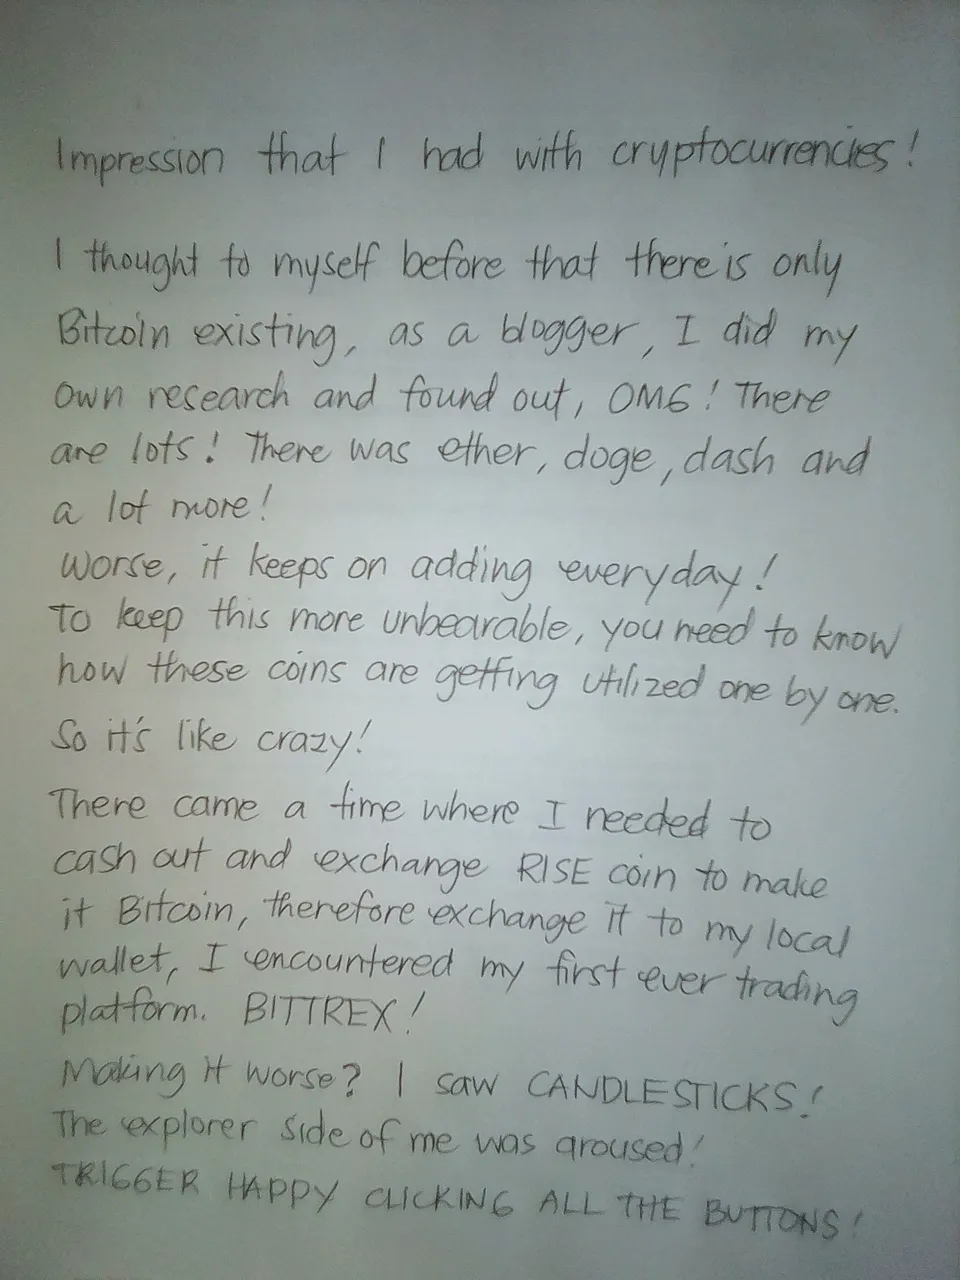 Impression that I had with cryptocurrencies!
I thought to myself before that there is only
Bitcoin existing, as a blogger, I did my
own research and found out, OMG! There
are lots! There was ether, doge, dash and
a lot more!
Worse, it keeps on adding everyday!
To keep this more unbearable, you need to know
how these coins are getting utilized one by one.
So it's like crazy!
There came a time where I needed to
cash out and exchange RISE coin to make
it Bitcoin, therefore exchange it to my local
wallet, I encountered my first ever trading
platform. BITTREX!
Making it worse? I saw CANDLESTICKS!
The explorer side of me was aroused!
TRIGGER HAPPY CLICKING ALL THE BUTTONS!